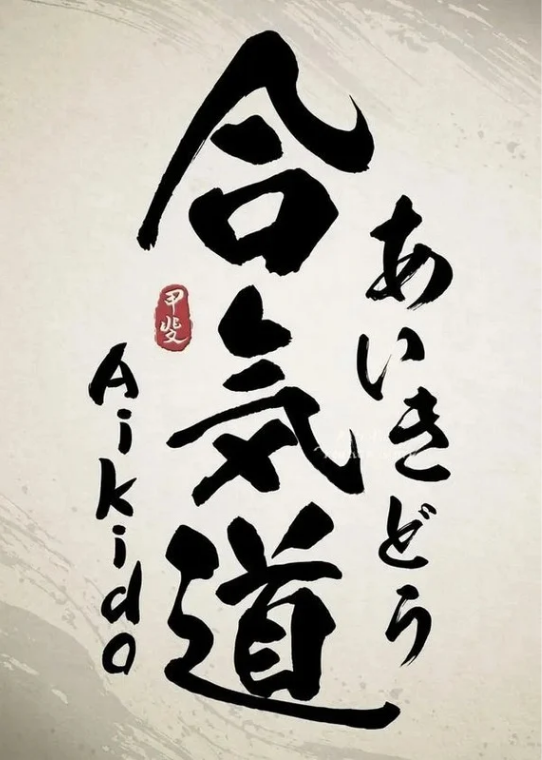 合気道
あいきどう
甲斐
Aikido